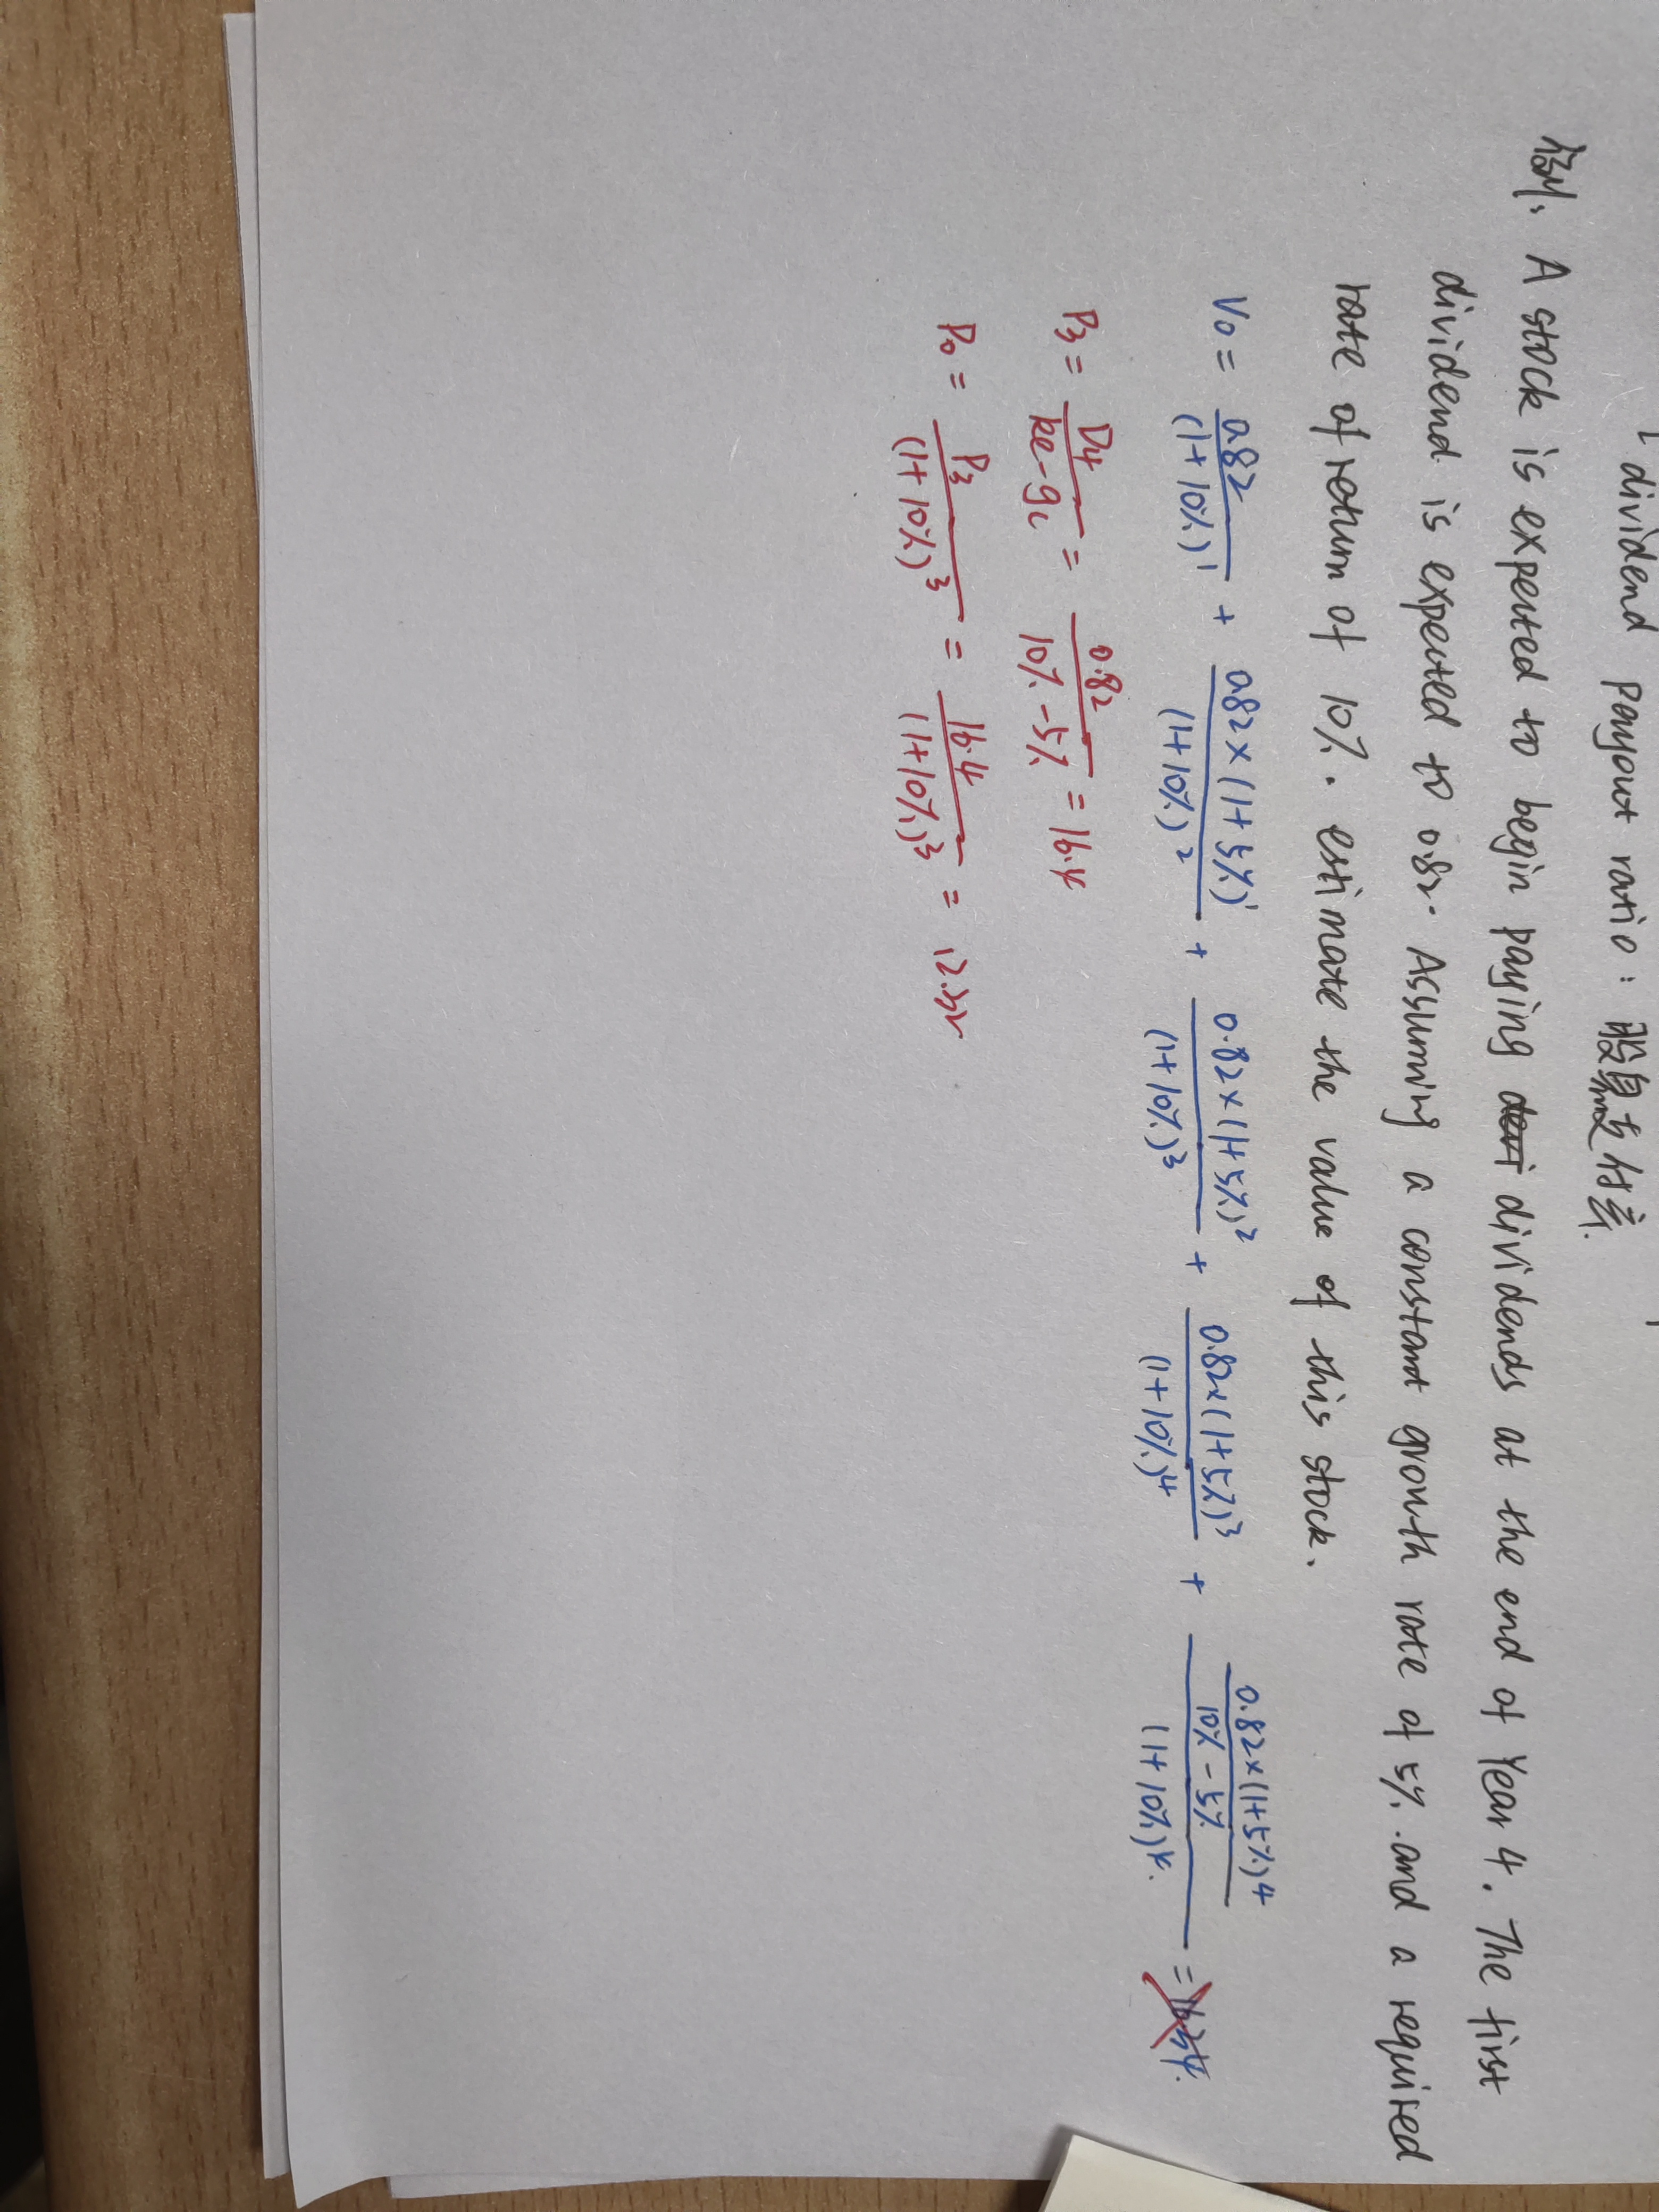 dividend payout ratio : 股息支付率.
例、A stock is expected to begin paying dividends at the end of Year 4. The first
dividend is expected to 0.82. Assuming a constant growth rate of 5% and a required
rate of return of 10%. estimate the value of this stock.
V0 = 0.82/(1+10%)^1 + 0.82×(1+5%)^1/(1+10%)^2 + 0.82×(1+5%)^2/(1+10%)^3 + 0.82×(1+5%)^3/(1+10%)^4 + (0.82×(1+5%)^4/(10%-5%))/(1+10%)^4. =
P3 = D4/(ke-gc) = 0.82/(10%-5%) = 16.4
P0 = P3/(1+10%)^3 = 16.4/(1+10%)^3 = 12.32